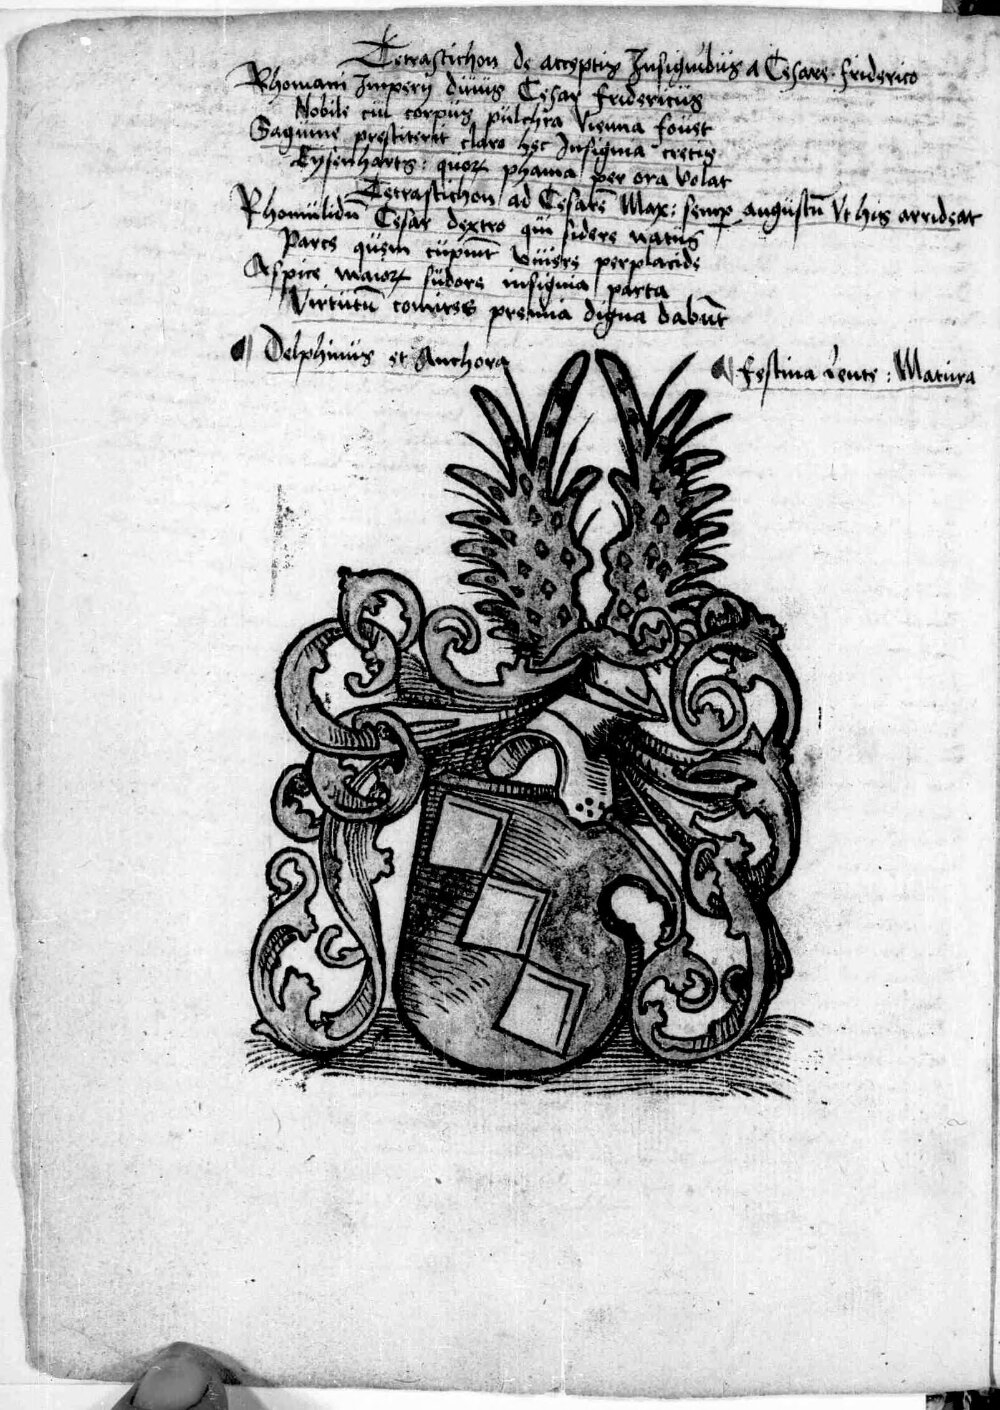 Tetrastichon de acceptis Insignibus A Cesare friderico
Rhomani Imperij diuus Cesar fridericus
Nobile cui corpus pulchra Vienna fouet
Saguine prestiterit claro hec Insignia cretis
Eysenharts: quorꝝ phama per ora volat
Tetrastichon ad Cesarē Max: semp augustū Vt his arrideat
Rhomulidū Cesar dextro qui sidere natus
Parce quem cupiūt viuere perplacide
Aspice maiorꝝ sudore insignia parta
Virtutū comites premia digna dabūt
¶ Delphinus et Anchora
¶ festina Lente: Matura